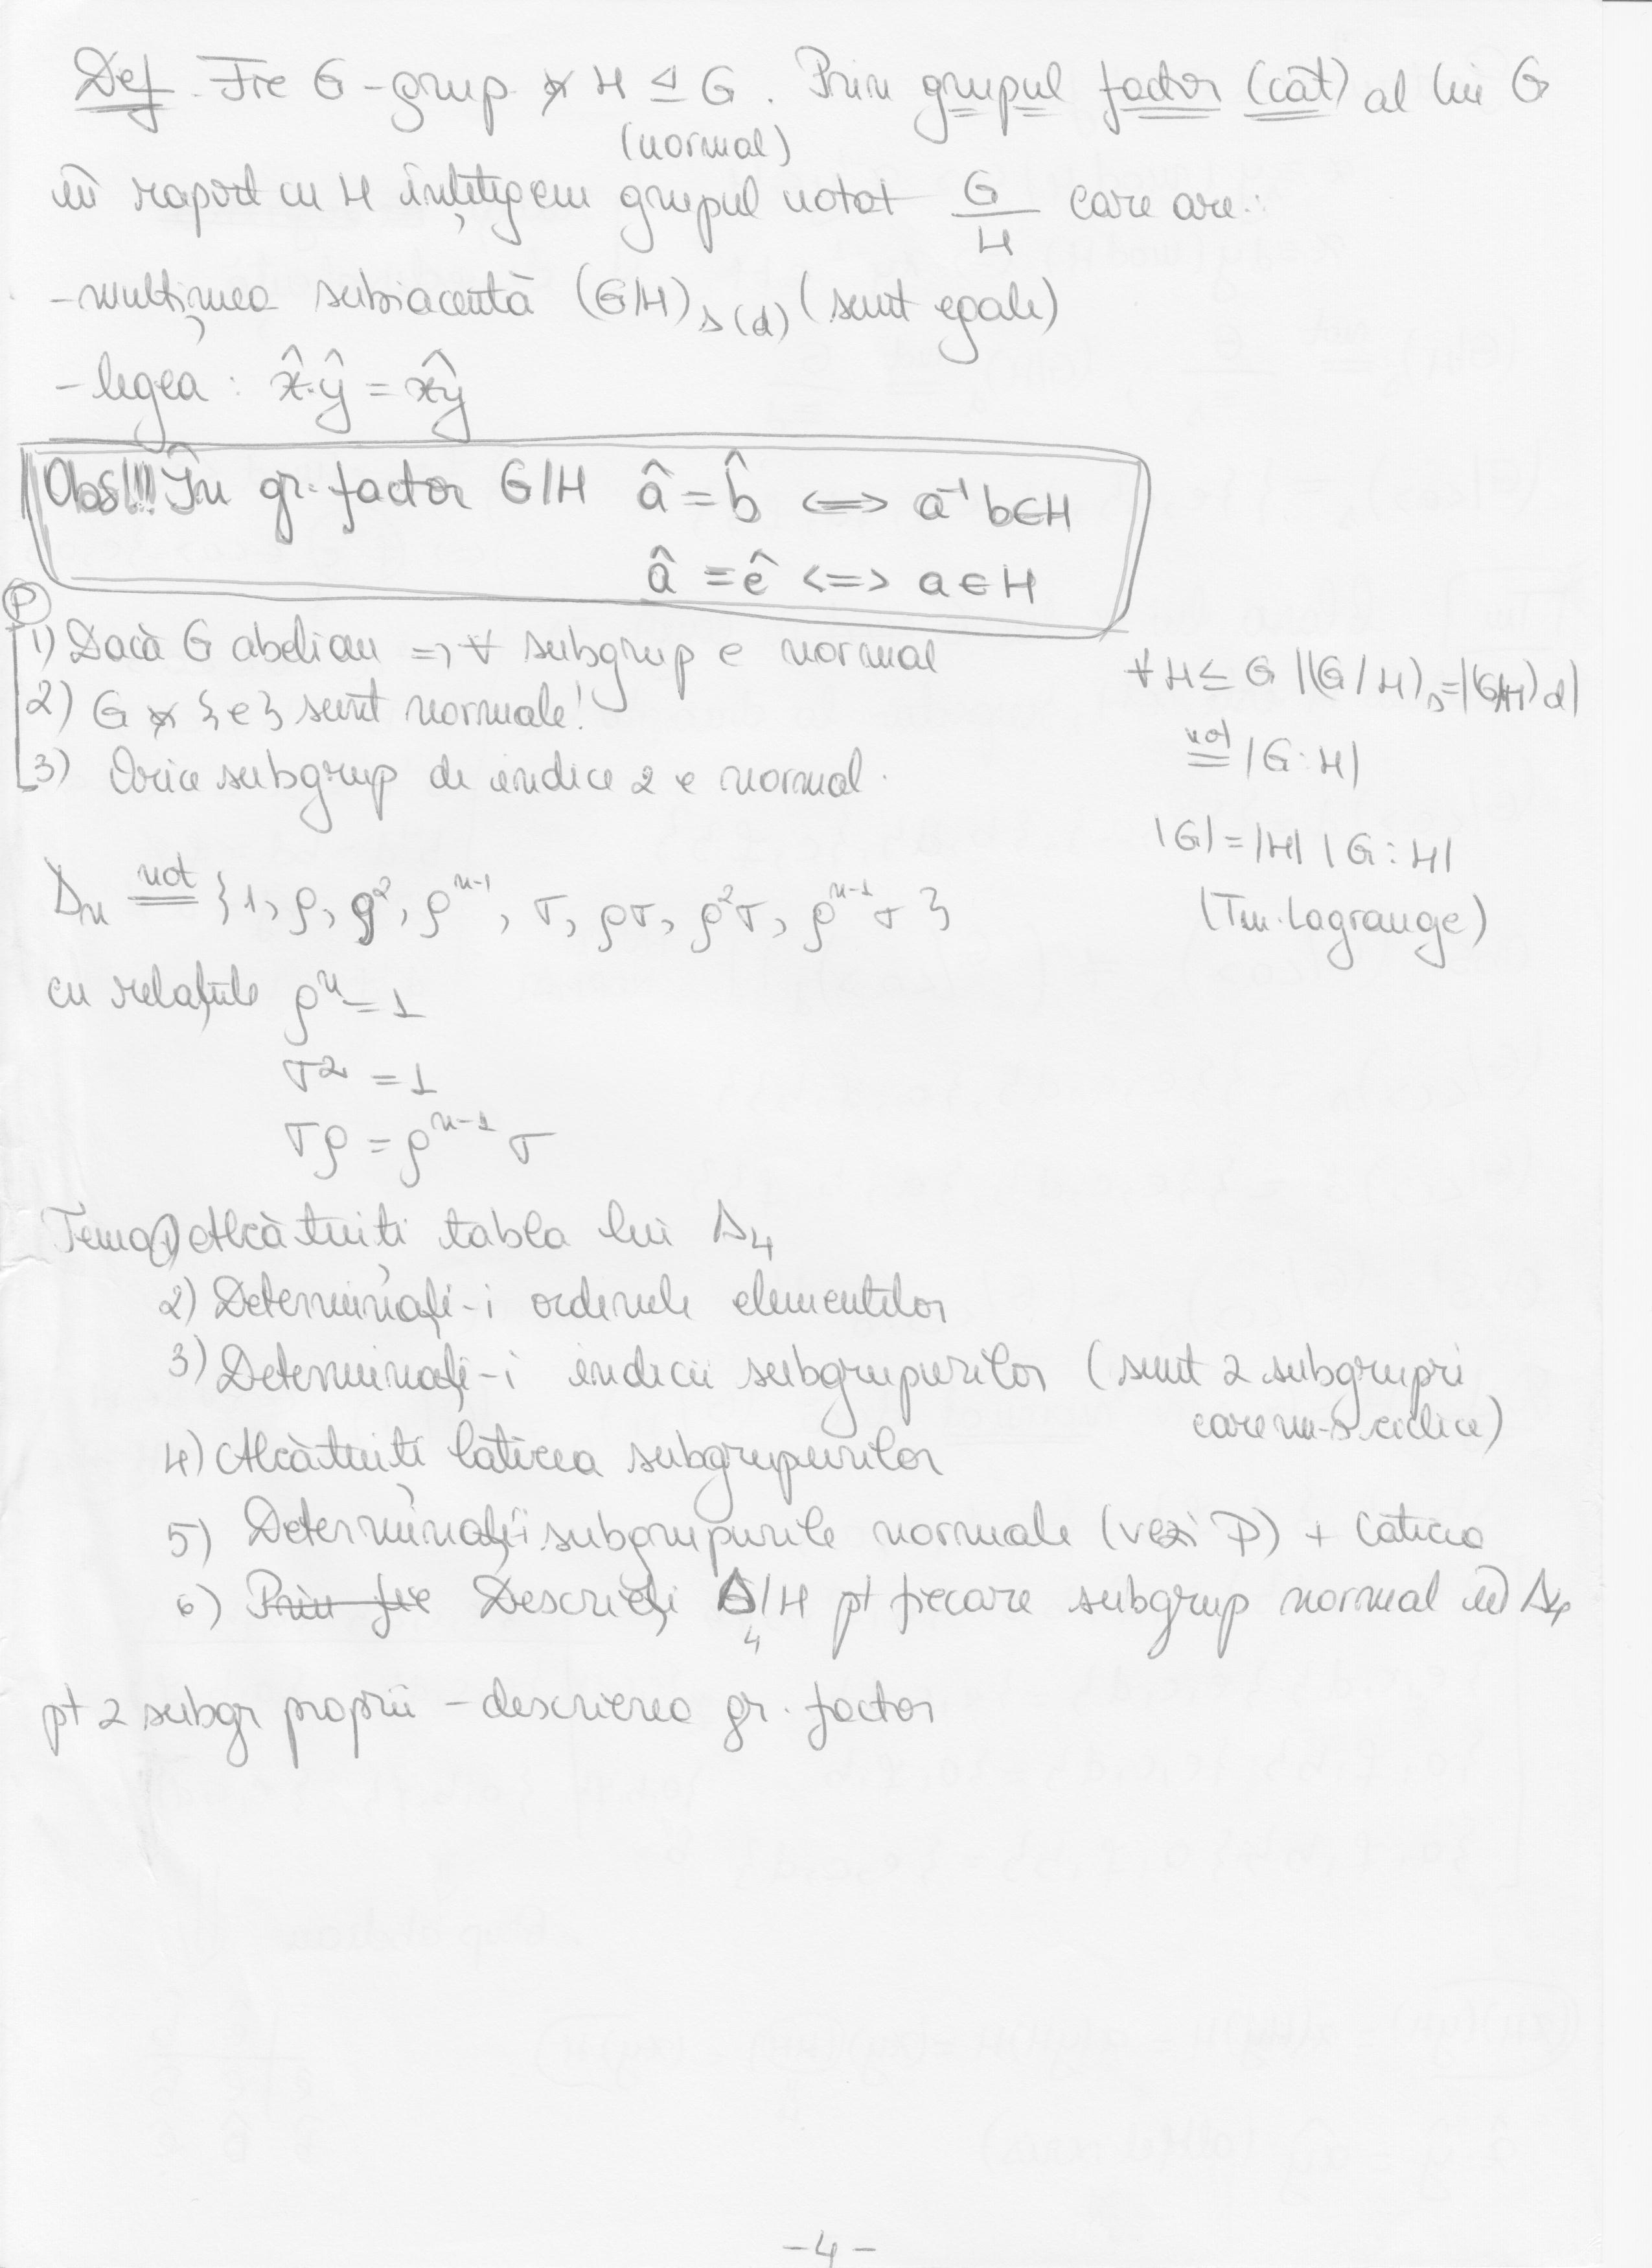 Def. Fie G-grup și H ⊴ G. Prin grupul factor (cât) al lui G
(normal)
în raport cu H înțelegem grupul notat G/H care are:
-mulțimea subiacentă (G/H)s(d) (sunt egale)
-legea: x̂·ŷ = x̂y
Obs!!! În gr. factor G/H â = b̂ <=> a⁻¹b∈H
â = ê <=> a∈H
P
1) Dacă G abelian => ∀ subgrup e normal
2) G și {e} sunt normale!
3) Orice subgrup de indice 2 e normal.
∀H≤G |(G/H)s|=|(G/H)d|
not= |G:H|
|G|=|H| |G:H|
(Tm. Lagrange)
Dn not= {1, ρ, ρ², ρⁿ⁻¹, τ, ρτ, ρ²τ, ρⁿ⁻¹τ}
cu relațiile ρⁿ=1
τ²=1
τρ = ρⁿ⁻¹τ
Tema 1) Alcătuiți tabla lui D₄
2) Determinați-i ordinele elementelor
3) Determinați-i indicii subgrupurilor (sunt 2 subgrupri
care nu-s ciclice)
4) Alcătuiti laticea subgrupurilor
5) Determinați-i subgrupurile normale (vezi P) + laticea
6) Prin fie Descrieți D₄/H pt fiecare subgrup normal în D₄
pt 2 subgr proprii - descrierea gr. factor
-4-